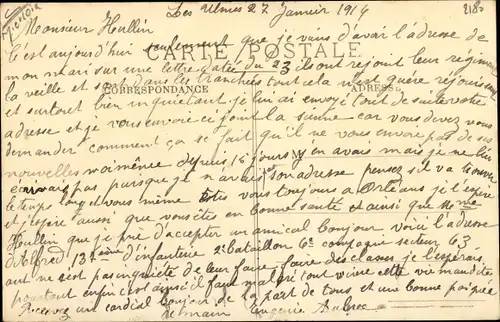 Les Ulmes 27 Janvier 1914
Monsieur Houllin
CARTE POSTALE
C'est aujourd'hui seulement que je viens d'avoir l'adresse de
mon mari sur une lettre datée du 23 ils ont rejoint leur régiment
la veille et sont dans les tranchées tout cela n'est guère réjouissant
CORRESPONDANCE
ADRESSE
et surtout bien inquiétant je lui ai envoyé tout de suite votre
adresse et je vous envoie ce jour la sienne car vous devez vous
demander comment ça se fait qu'il ne vous envoie pas de ses
nouvelles moi même depuis 15 jours j'en avais mais je ne lui
pas puisque je n'avais son adresse pensez s'il va trouver
le temps long et vous même êtes vous toujours à Orléans je l'espère
et j'espère aussi que vous êtes en bonne santé et ainsi que Mme
Houllin que je prie d'accepter un amical bonjour voici l'adresse
d'Alfred 131ème d'infanterie 2e bataillon 6e compagnie secteur 63
on ne s'est pas inquiété de leur faire faire des classes je l'espérais
pourtant enfin c'est ainsi il faut malgré tout vivre cette vie maudite
Recevez un cordial bonjour de la part de tous et une bonne poignée
de main Eugénie